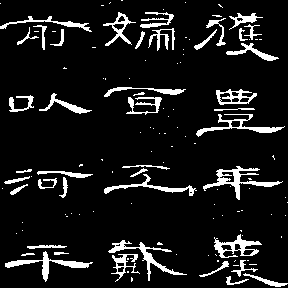 獲豐年農
婦百工戴
前以河平